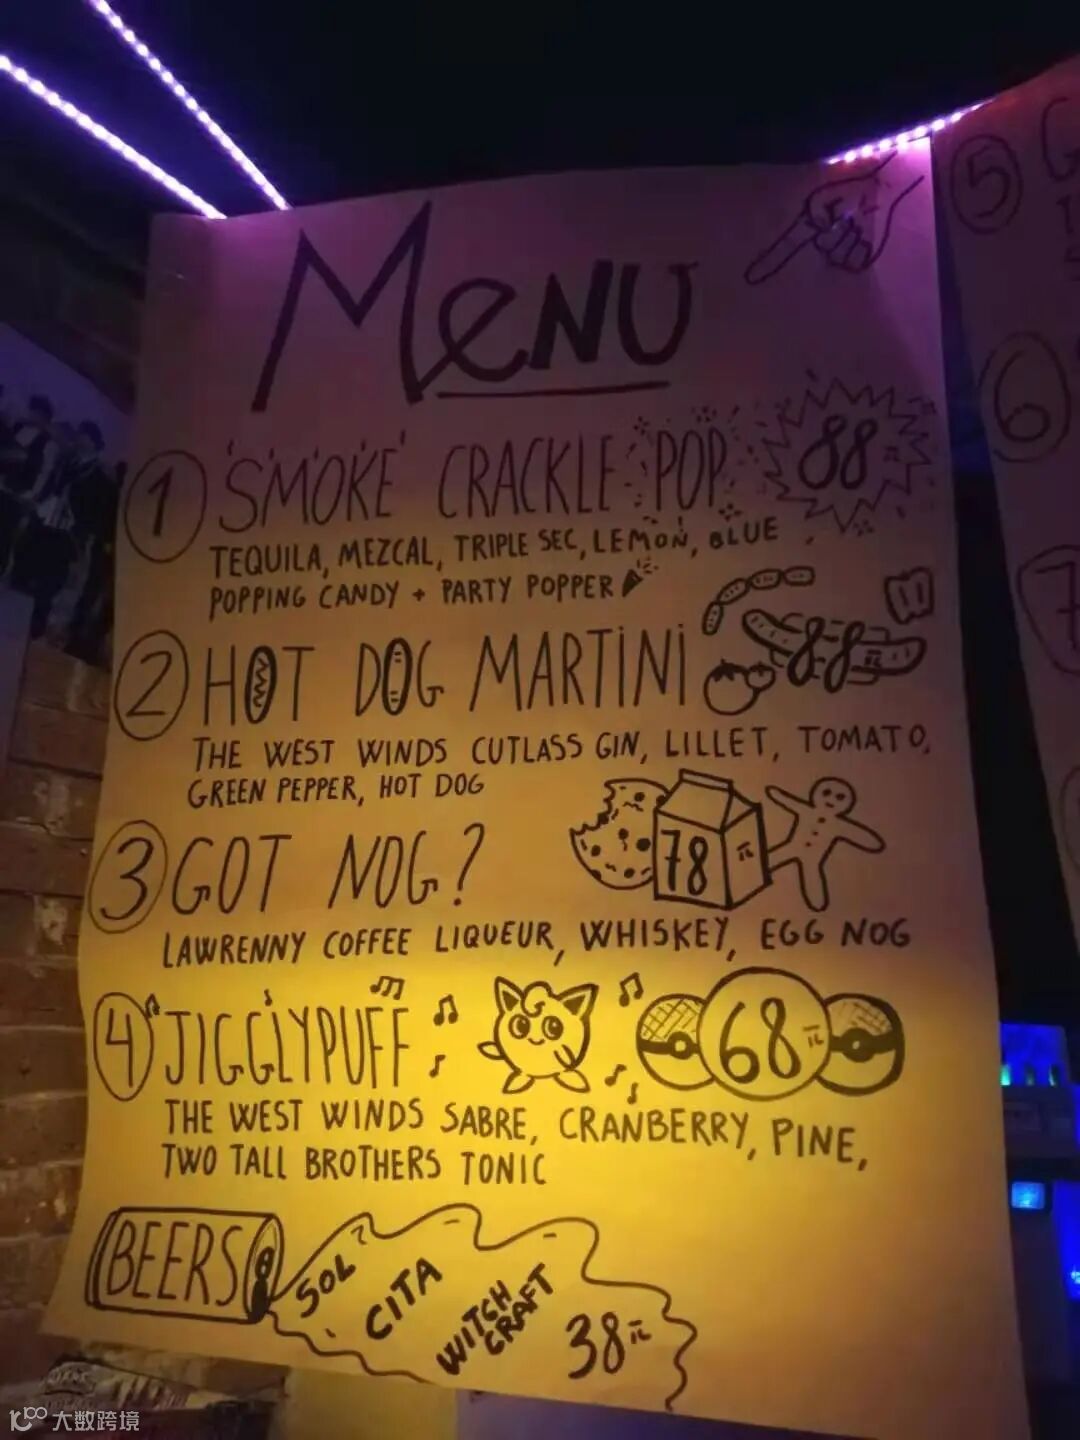 MENU
1 'SMOKE' CRACKLE POP 88元
TEQUILA, MEZCAL, TRIPLE SEC, LEMON, BLUE
POPPING CANDY + PARTY POPPER
2 HOT DOG MARTINI 88元
THE WEST WINDS CUTLASS GIN, LILLET, TOMATO,
GREEN PEPPER, HOT DOG
3 GOT NOG? 78元
LAWRENNY COFFEE LIQUEUR, WHISKEY, EGG NOG
4 JIGGLYPUFF 68元
THE WEST WINDS SABRE, CRANBERRY, PINE,
TWO TALL BROTHERS TONIC
BEERS
SOL
CITA
WITCH
CRAFT
38元
5 G
6
7
大数跨境